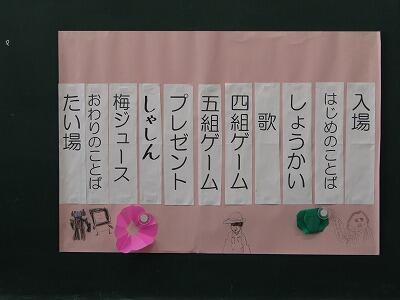 入場
はじめのことば
しょうかい
歌
四組ゲーム
五組ゲーム
プレゼント
しゃしん
梅ジュース
おわりのことば
たい場